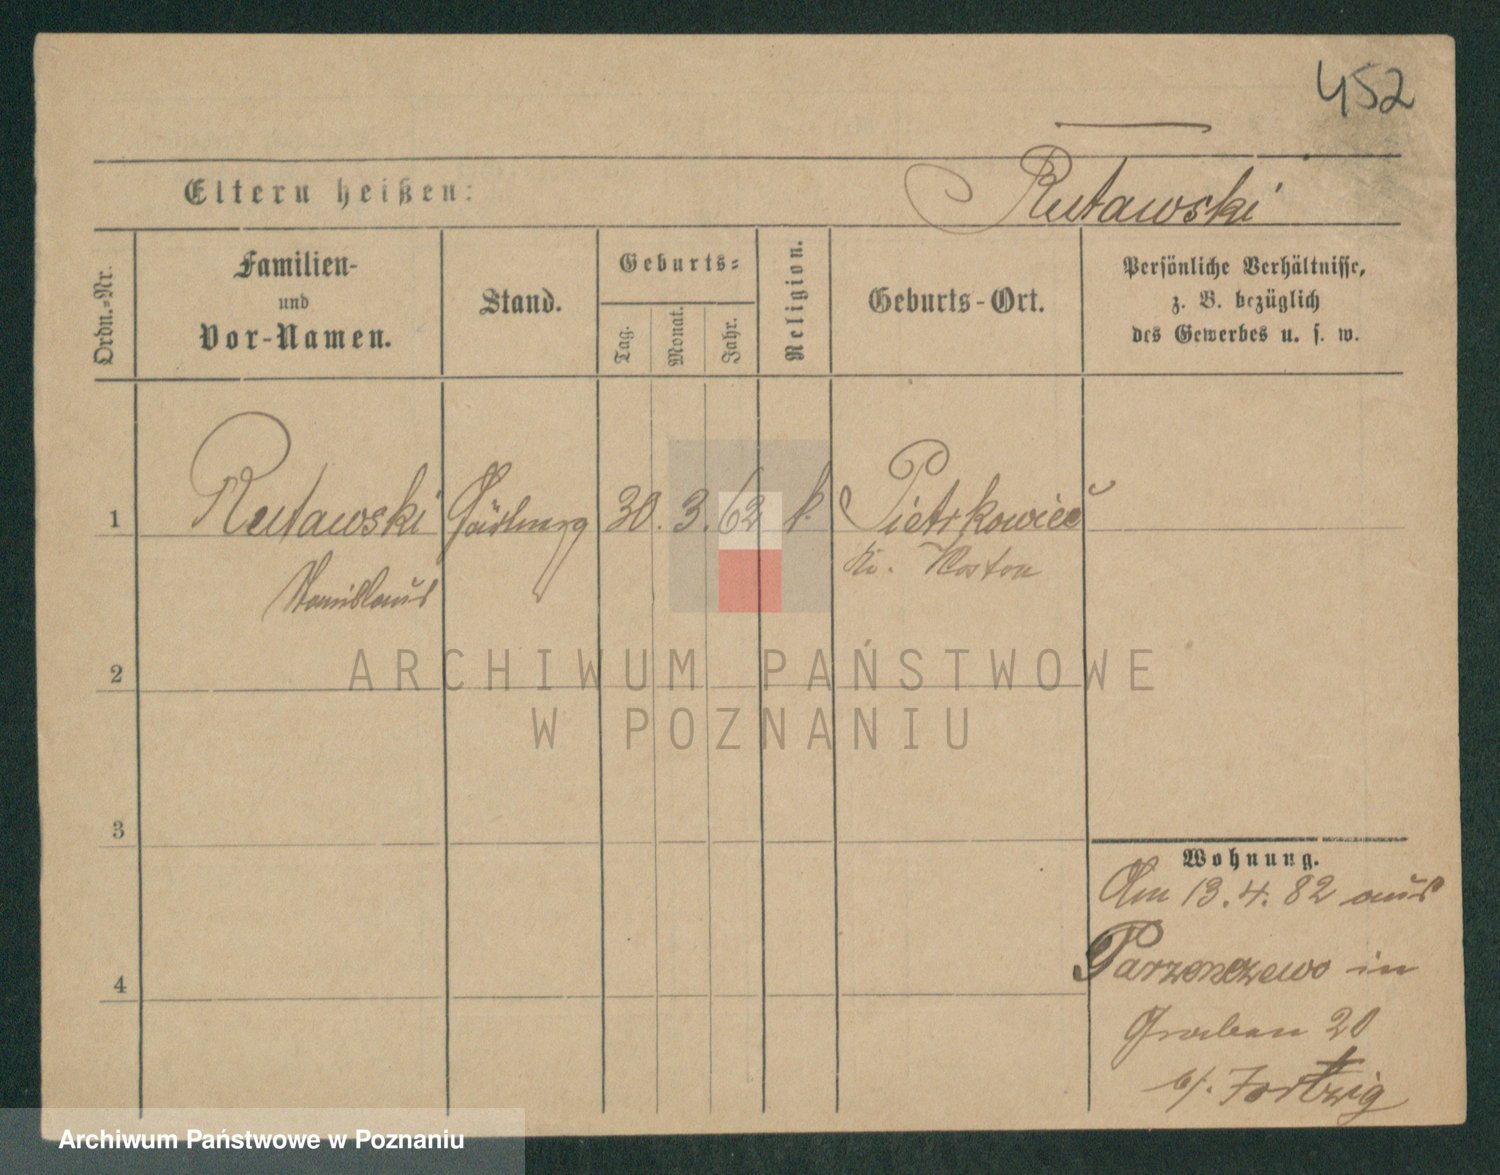 452
Eltern heißen:
Rutawski
Ordn.-Nr.
Familien-
und
Vor-Namen.
Stand.
Geburts-
Tag.
Monat.
Jahr.
Religion.
Geburts-Ort.
Persönliche Verhältnisse,
z. B. bezüglich
des Gewerbes u. s. w.
1 Rutawski 30. 3. 62 k. Pietrkowice
Stanislaus Kr. Kosten
2
3
4
Wohnung.
Am 13.4.82 aus
Parzenczewo in
Graben 20
b/.
ARCHIWUM PAŃSTWOWE
W POZNANIU
Archiwum Państwowe w Poznaniu